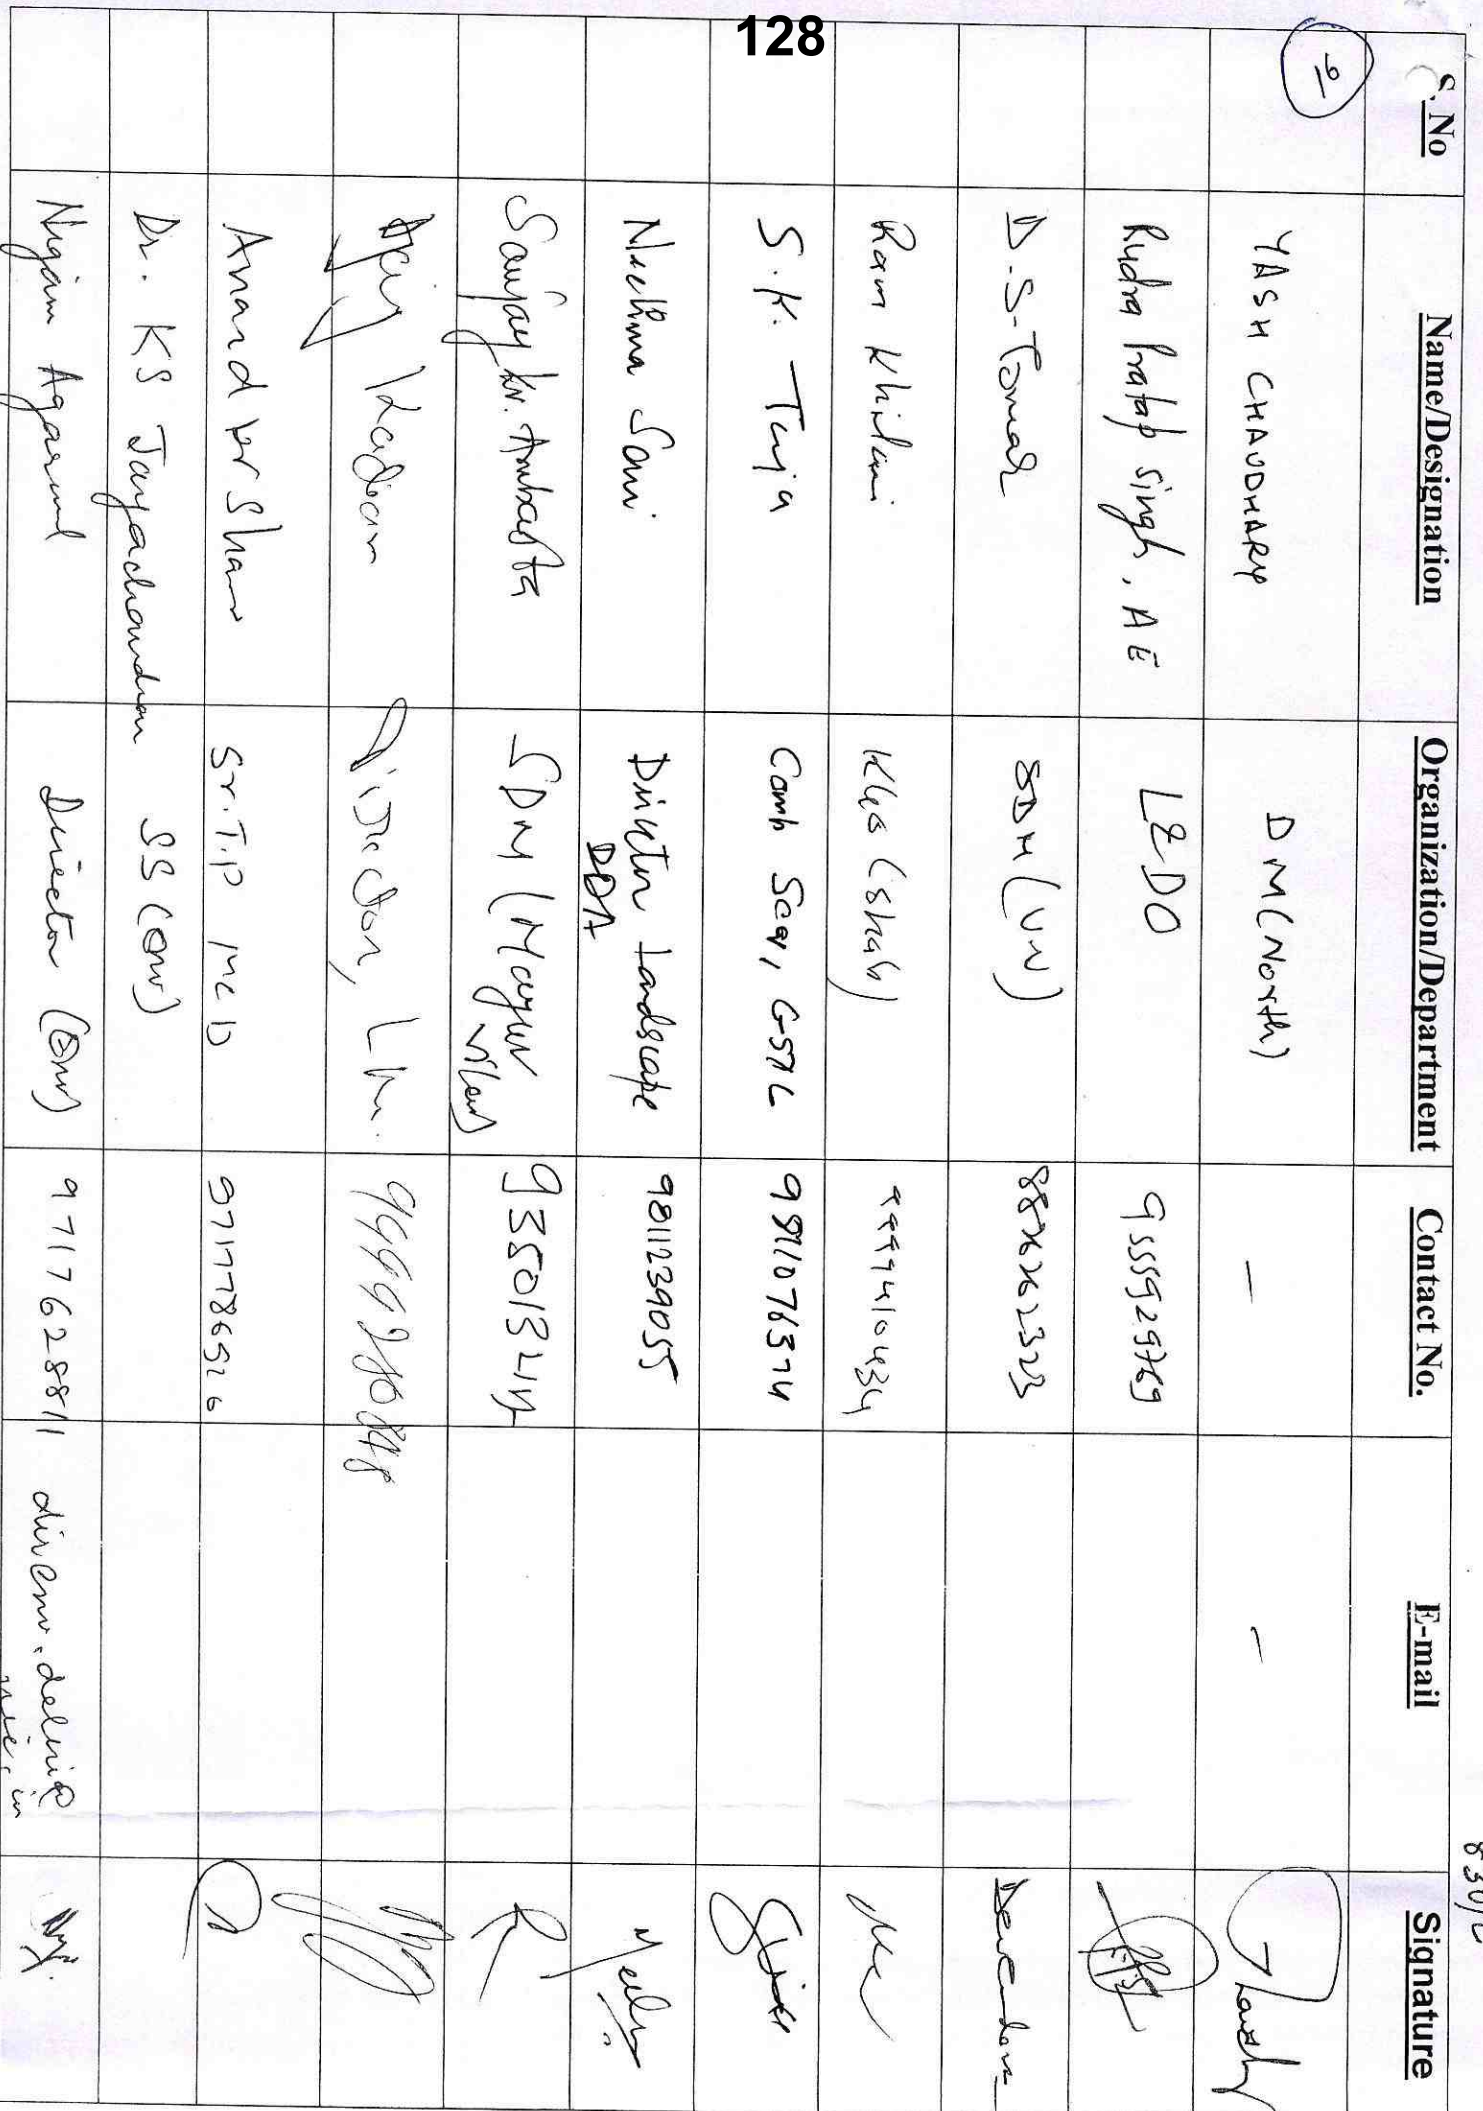 128
830/C
S. No Name/Designation Organization/Department Contact No. E-mail Signature
YASH CHAUDHARY DM (North) - -
Rudra Pratap Singh, AE L&DO 9555929769
D.S. Tomar SDM (VV) 8826262323 Devendra
Ram Khilani
S.K. Tuja GSDL 9971076374
Neelima Soni Director Landscape DDA 9811239055
Sanjay Kr. Ambasta SDM (Mayur Vihar)
Ajay Kadian Director,
Anand Kr Shar Sr. T.P MCD 9717786526
Dr. KS Jayachandran SS (Env)
Nigam Agarwal Director (Env) 9717628811 direnv.delhi@
nic.in